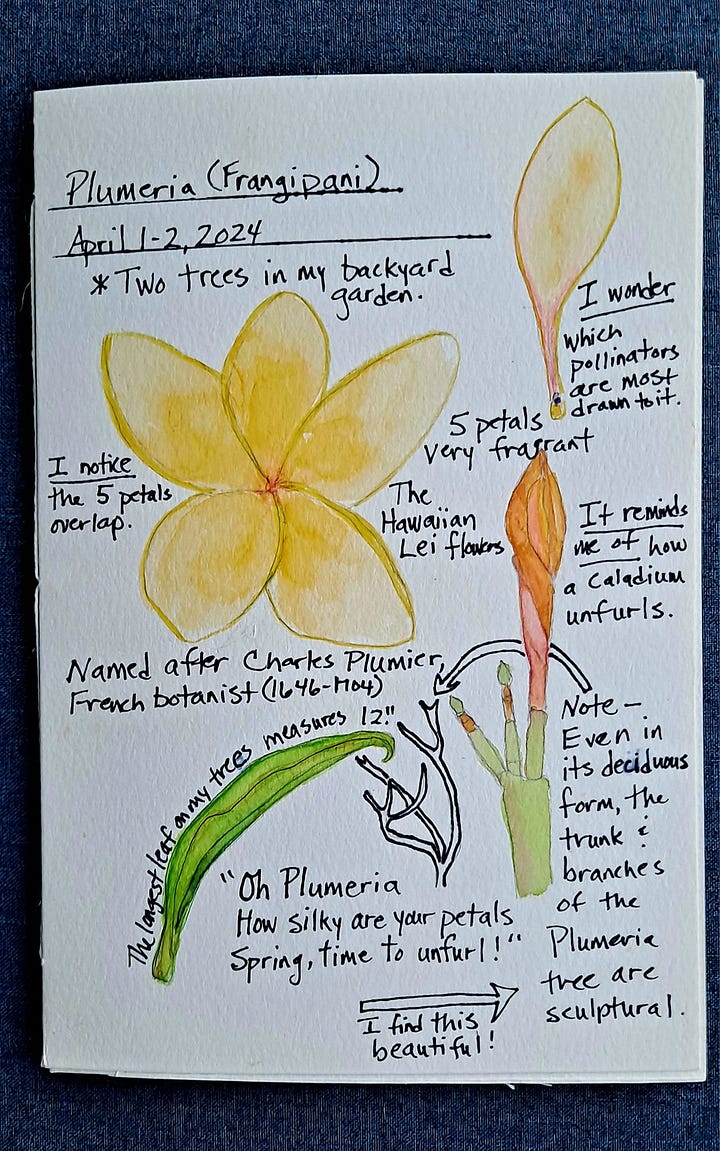 Plumeria (Frangipani)
April 1-2, 2024
* Two trees in my backyard
garden.
I wonder
which
pollinators
are most
drawn to it.
5 petals
Very fragrant
I notice
the 5 petals
overlap.
The
Hawaiian
Lei flowers
It reminds
me of how
a Caladium
unfurls.
Named after Charles Plumier,
French botanist (1646-1704)
The longest leaf on my trees measures 12."
Note -
Even in
its deciduous
form, the
trunk &
branches
of the
Plumeria
tree are
sculptural.
"Oh Plumeria
How silky are your petals
Spring, time to unfurl!"
I find this
beautiful!